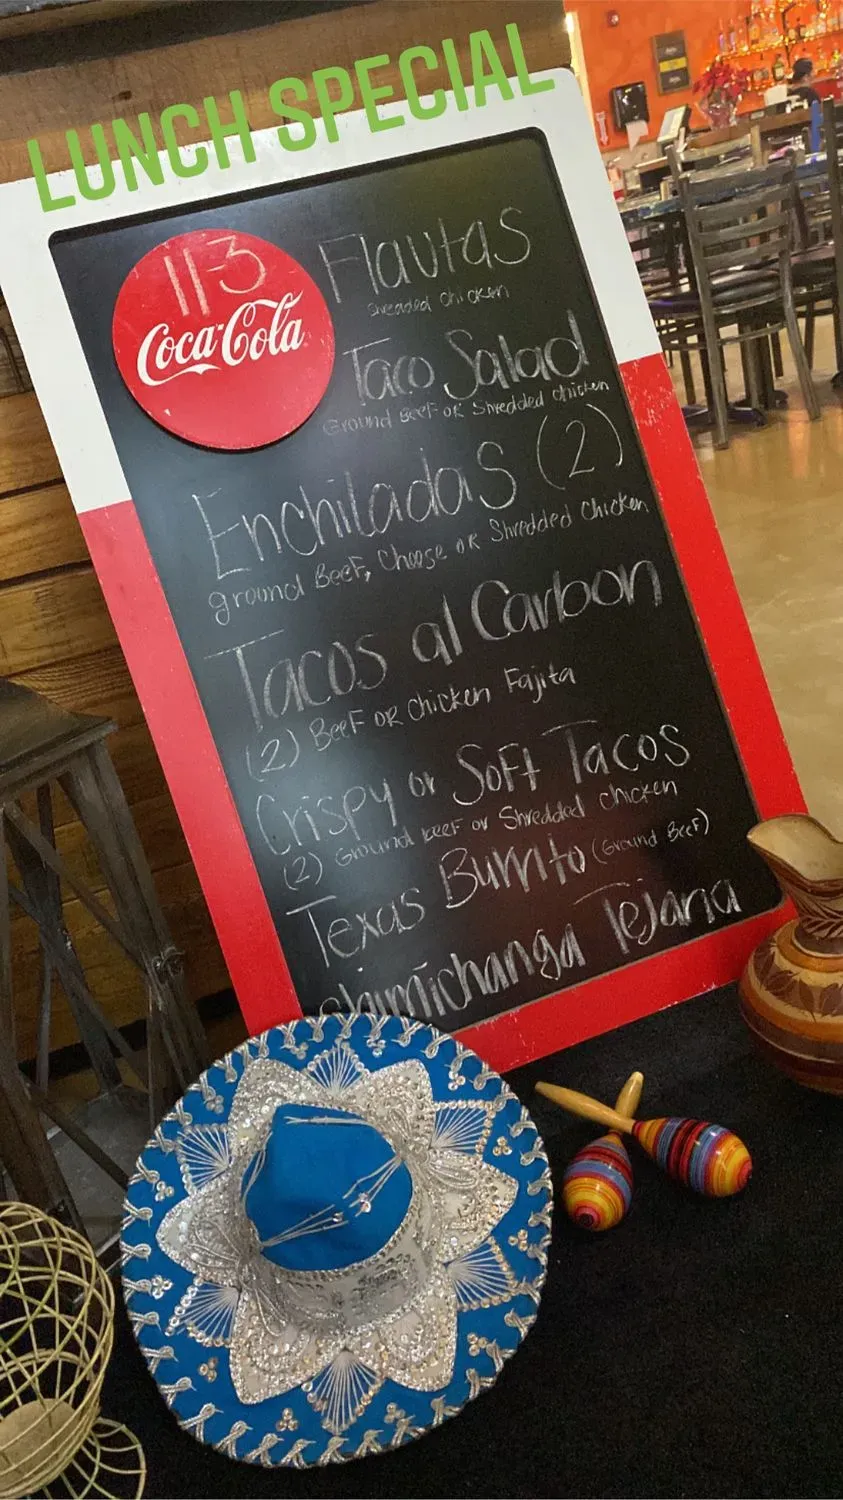 LUNCH SPECIAL
11-3
Coca-Cola
Flautas
Shreaded chicken
Taco Salad
Ground Beef or Shredded chicken
Enchiladas (2)
ground Beef, Cheese or Shredded chicken
Tacos al Carbon
(2) Beef or chicken Fajita
Crispy or Soft Tacos
(2) Ground Beef or Shredded chicken
Texas Burrito (Ground Beef)
chimichanga Tejana